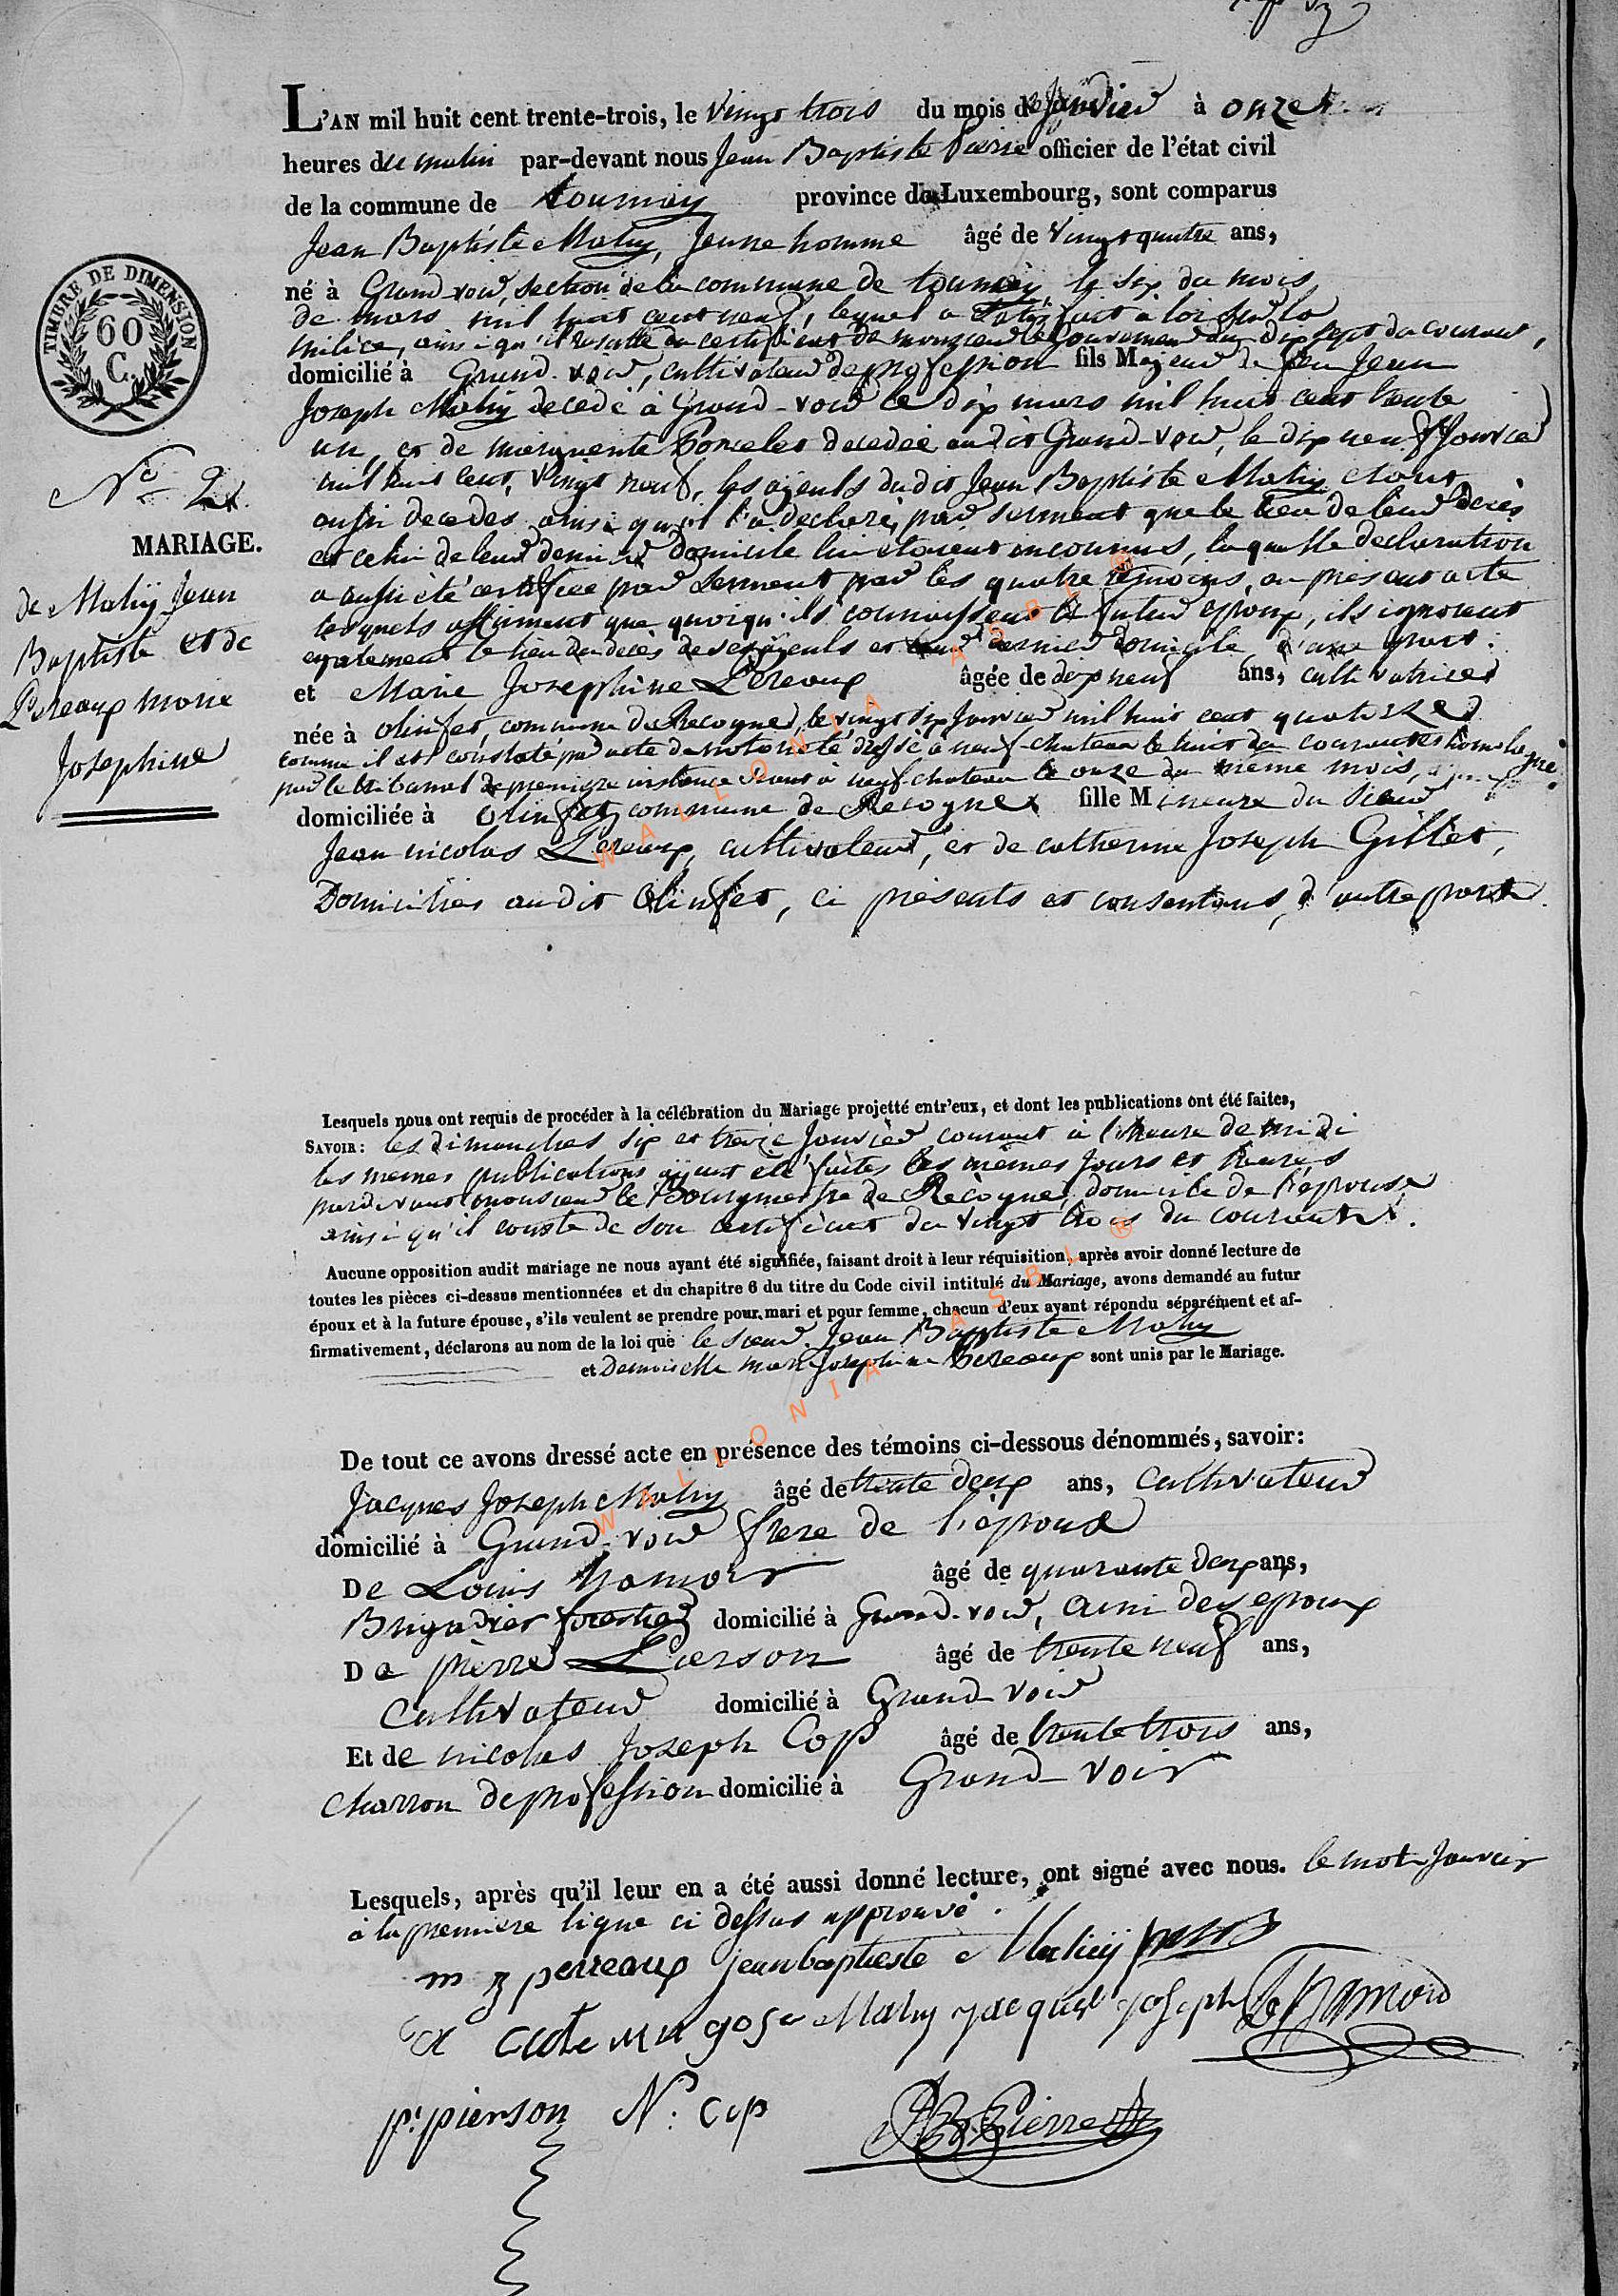 L'AN mil huit cent trente-trois, le vingt trois du mois de Janvier à onze
heures du matin par-devant nous Jean Baptiste Pierre officier de l'état civil
de la commune de tournay province de Luxembourg, sont comparus
Jean Baptiste Mahy, Jeune homme âgé de vingt quatre ans,
né à Grand-voir, section de la commune de tournay, le six du mois
de mars mil huit cent neuf, lequel a satisfait à loi sur la
milice, ainsi qu'il resulte du certificat de monsieur le Gouverneur du dix sept du courant,
domicilié à Grand-voir, cultivateur de profession fils Majeur de feu Jean
Joseph Mahy decedé à Grand-voir le dix mars mil huit cent trente
un, et de marguerite Poncelet decedée au dit Grand-voir, le dix neuf Janvier
mil huit cent vingt neuf, les ayeuls du dit Jean Baptiste Mahy etant
aussi decedes ainsi qu'il l'a declaré, par serment que le lieu de leur décès
et celui de leur dernier domicile lui etoient inconnus, laquelle declaration
a aussi été certifiée par serment par les quatre temoins, au présent acte
lesquels affirment que quoiqu'ils connoissent le futur epoux, ils ignorent
egalement le lieu du décès de ses ayeuls et leur dernier domicile, d'une part.
et Marie Josephine Pereaux âgée de dix neuf ans, cultivatrice
née à Olinfet, commune de Recogne, le vingt six Janvier mil huit cent quatorze
comme il est constaté par acte de notorieté dressé à neufchateau le huit du courant et homologué
par le tribunal de premiere instance seant à neufchateau le onze du même mois,
domiciliée à Olinfet commune de Recogne fille Mineure du Sieur
Jean nicolas Pereaux, cultivateur, et de catherine Joseph Gillet,
Domiciliés au dit Olinfet, ci présents et consentans, d'autre part.
TIMBRE DE DIMENSION
60
C.
N° 2
MARIAGE.
de Mahy Jean
Baptiste et de
Pereaux marie
Josephine
Lesquels nous ont requis de procéder à la célébration du Mariage projetté entr'eux, et dont les publications ont été faites,
SAVOIR: les dimanches six et treize Janvier courant à l'heure de midi
les mêmes publications ayant été faites les mêmes jours et heures
pardevant monsieur le Bourgmestre de Recogne, domicile de l'épouse
ainsi qu'il conste de son certificat du vingt trois du courant.
Aucune opposition audit mariage ne nous ayant été signifiée, faisant droit à leur réquisition, après avoir donné lecture de
toutes les pièces ci-dessus mentionnées et du chapitre 6 du titre du Code civil intitulé du Mariage, avons demandé au futur
époux et à la future épouse, s'ils veulent se prendre pour mari et pour femme, chacun d'eux ayant répondu séparément et af-
firmativement, déclarons au nom de la loi que le sieur Jean Baptiste Mahy
et Demoiselle marie Josephine Pereaux sont unis par le Mariage.
De tout ce avons dressé acte en présence des témoins ci-dessous dénommés, savoir:
Jacques Joseph Mahy âgé de trente deux ans, cultivateur
domicilié à Grand-voir frere de l'époux
De Louis hamoir âgé de quarante deux ans,
Brigadier forestier domicilié à Grand-voir, ami des epoux
De pierre Pierson âgé de trente neuf ans,
cultivateur domicilié à Grand-voir
Et de nicolas Joseph Cop âgé de trente trois ans,
charron de profession domicilié à Grand-voir
Lesquels, après qu'il leur en a été aussi donné lecture, ont signé avec nous. le mot Janvier
à la premiere ligne ci dessus approuvé.
m j perreaux jean baptiste Mahy
Mahy jacque joseph
p. pierson N: Cop JB. Pierre
WALLONIA ASBL ®
WALLONIA ASBL ®